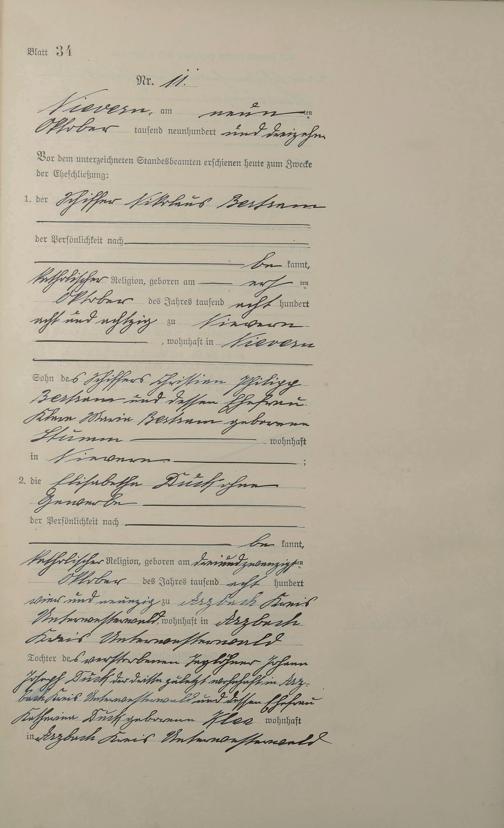 Blatt 34
Nr. 11.
Nievern, am neun ten
Oktober tausend neunhundert und dreizehn
Vor dem unterzeichneten Standesbeamten erschienen heute zum Zwecke
der Eheschließung:
1. der Schiffer Nikolaus Bertram
der Persönlichkeit nach
be kannt,
katholischer Religion, geboren am elf ten
Oktober des Jahres tausend acht hundert
acht und achtzig zu Nievern
, wohnhaft in Nievern
Sohn des Schiffers Christian Philipp
Bertram und dessen Ehefrau
Maria Bertram geborenen
Stumm wohnhaft
in Nievern ;
2. die Elisabetha Duck ohne
Gewerbe
der Persönlichkeit nach
be kannt,
katholischer Religion, geboren am dreiundzwanzigsten
Oktober des Jahres tausend acht hundert
vier und neunzig zu Arzbach Kreis
Unterwesterwald, wohnhaft in Arzbach
Kreis Unterwesterwald
Tochter des verstorbenen Taglöhner Johann
Joseph Duck der dritte zuletzt wohnhaft in Arz-
bach Kreis Unterwesterwald und dessen Ehefrau
Katharina Duck geborenen Klee wohnhaft
in Arzbach Kreis Unterwesterwald